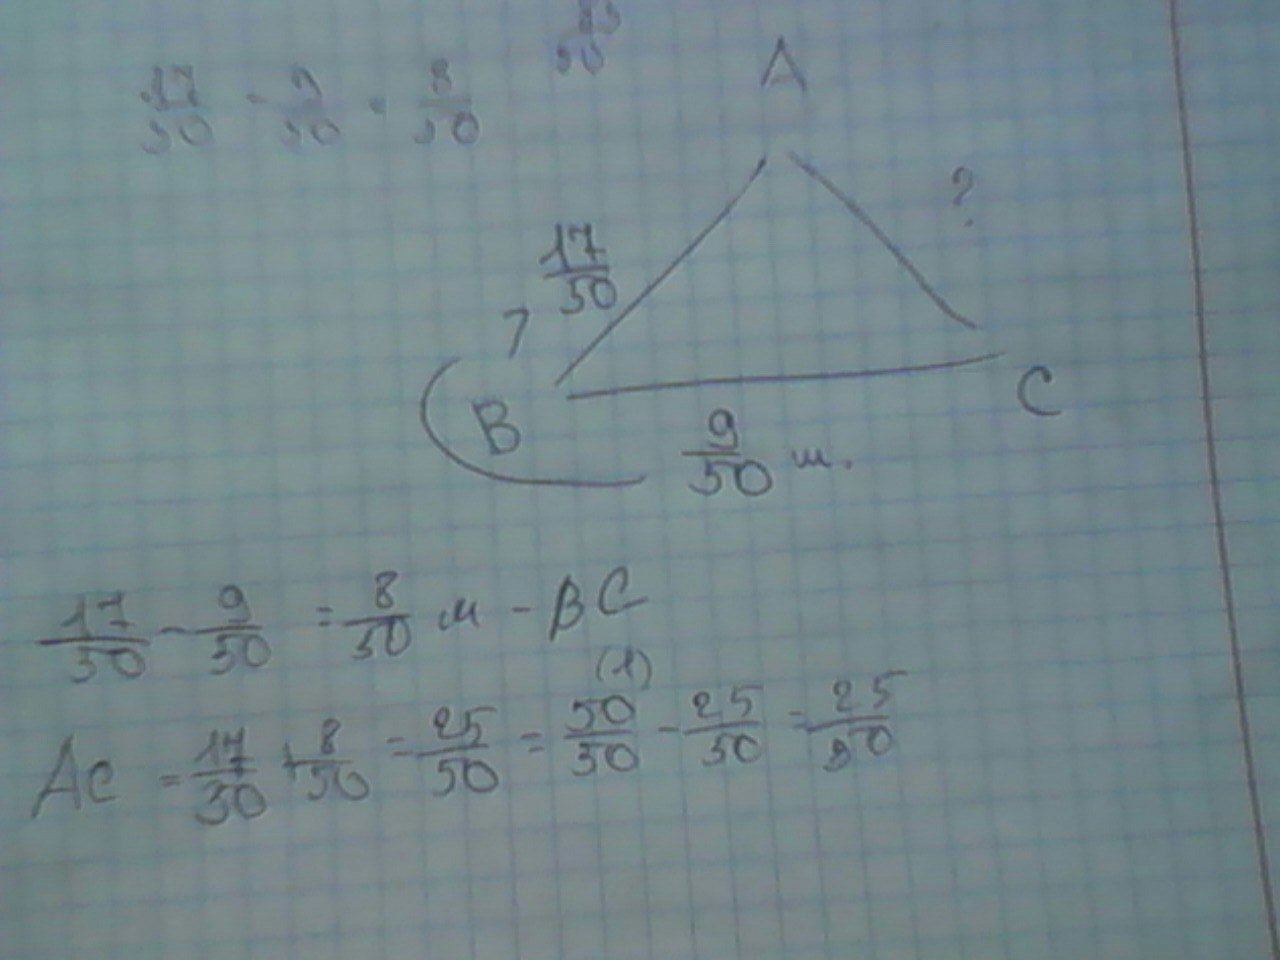 17/50 - 9/50 = 8/50
A
?
17/50
7
B
C
9/50 м.
17/50 - 9/50 = 8/50 м - BC
(1)
AC = 17/50 + 8/50 = 25/50 = 50/50 - 25/50 = 25/50